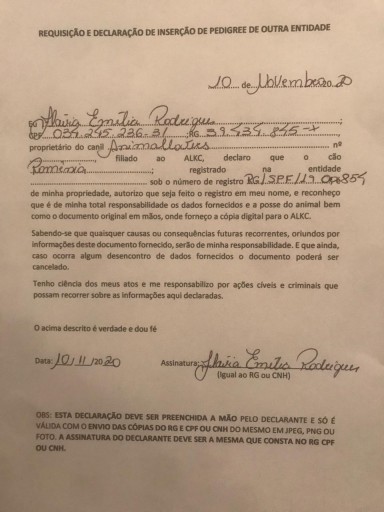 REQUISIÇÃO E DECLARAÇÃO DE INSERÇÃO DE PEDIGREE DE OUTRA ENTIDADE
10 de Novembro 20
Eu Flavia Emilia Rodrigues ;
CPF 034.245.236-31 ;RG 59.434.845-X ,
proprietário do canil Animallattes nº
, filiado ao ALKC, declaro que o cão
Romênia ; registrado na entidade
sob o número de registro RG/SPF/19.
de minha propriedade, autorizo que seja feito o registro em meu nome, e reconheço
que é de minha total responsabilidade os dados fornecidos e a posse do animal bem
como o documento original em mãos, onde forneço a cópia digital para o ALKC.
Sabendo-se que quaisquer causas ou consequências futuras recorrentes, oriundos por
informações deste documento fornecido, serão de minha responsabilidade. E que ainda,
caso ocorra algum desencontro de dados fornecidos o documento poderá ser
cancelado.
Tenho ciência dos meus atos e me responsabilizo por ações cíveis e criminais que
possam recorrer sobre as informações aqui declaradas.
O acima descrito é verdade e dou fé
Data: 10/11/2020 Assinatura: Flavia Emilia Rodrigues
(Igual ao RG ou CNH)
OBS: ESTA DECLARAÇÃO DEVE SER PREENCHIDA A MÃO PELO DECLARANTE E SÓ É
VÁLIDA COM O ENVIO DAS CÓPIAS DO RG E CPF OU CNH DO MESMO EM JPEG, PNG OU
FOTO. A ASSINATURA DO DECLARANTE DEVE SER A MESMA QUE CONSTA NO RG CPF
OU CNH.